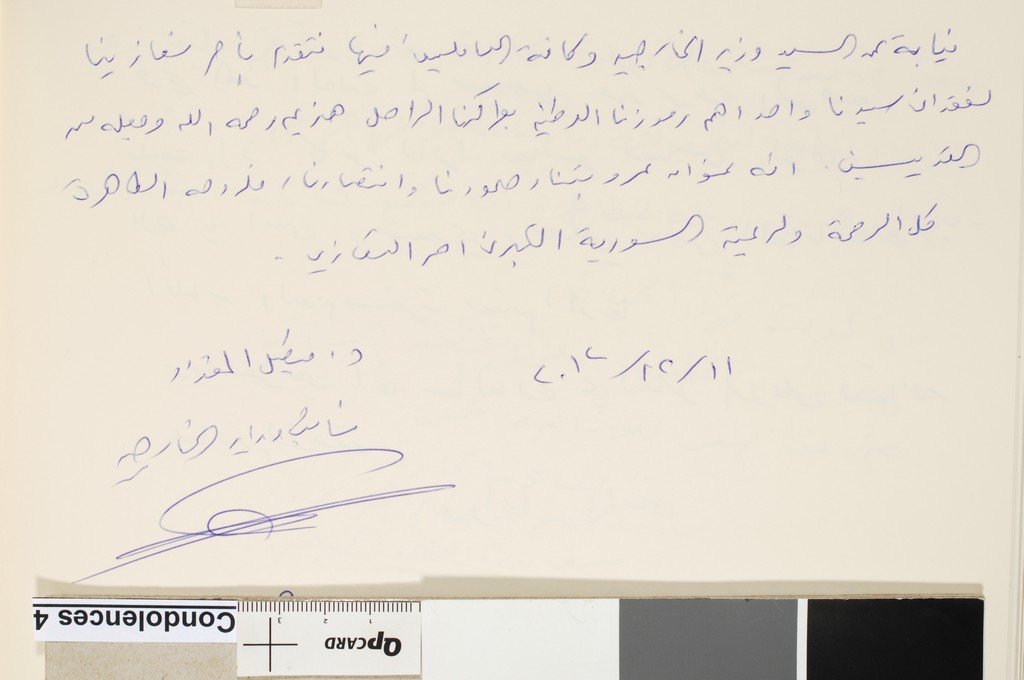 نيابة عن السيد وزير الخارجية وكافة العاملين فيها نتقدم بأحر تعازينا
لفقدان سيدنا واحد اهم رموزنا الوطنية بطركنا الراحل هزيم رحمه الله وجعله من
القديسين. انه عنوان عروبتنا وصمودنا وانتصارنا، فلروحه الطاهرة
كل الرحمة ولرعيته السورية الكبرى احر التعازي.
٢٠١٢/١٢/١١
د. فيصل المقداد
نائب وزير الخارجية
Condolences 4
QPCARD
1 2 3